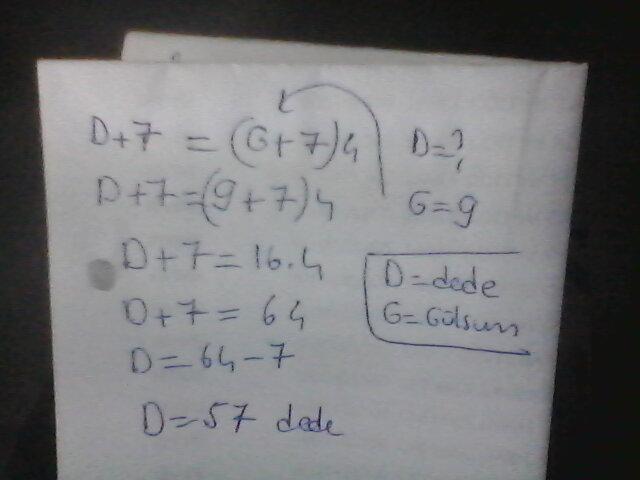 D+7 = (G+7)4
D=?
D+7=(9+7)4
G=9
D+7=16.4
D=dede
D+7=64
G=Gülsum
D=64-7
D=57 dede